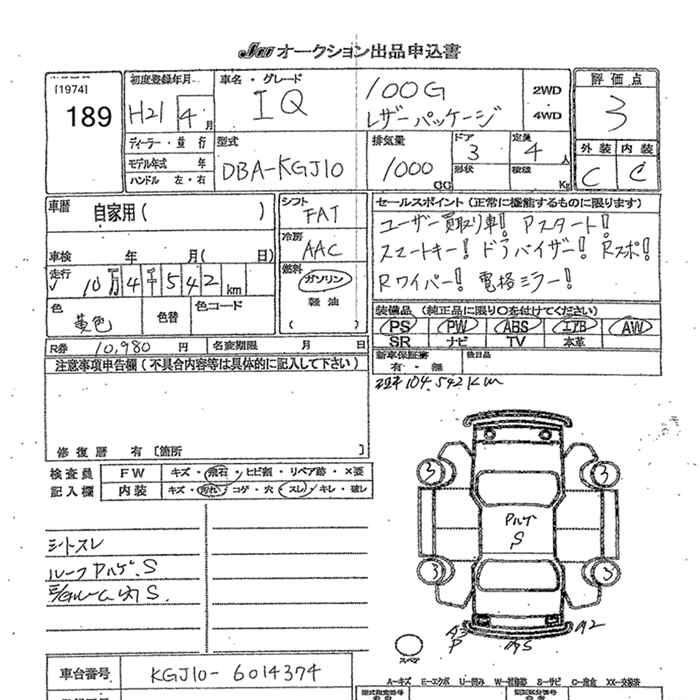 オークション出品申込書
[1974]
189
初度登録年月
H21 4 月
車名・グレード
IQ
100G
レザーパッケージ
2WD
4WD
評価点
3
外装 内装
C C
ディーラー・並行
モデル年式 年
ハンドル 左・右
型式
DBA-KGJ10
排気量
1000
CC
ドア
3
形状
定員
4 人
積載
Kg
車歴
自家用( )
車検 年 月( 日)
走行
10万4千542km
色
黄色
色替
色コード
シフト
FAT
冷房
AAC
燃料
ガソリン
軽油
( )
セールスポイント(正常に機能するものに限ります)
ユーザー買取り車! Pスタート!
スマートキー! ドラバイザー! Rスポ!
Rワイパー! 電格ミラー!
装備品(純正品に限り○を付けてください)
PS PW ABS エアB AW
SR ナビ TV 本革
R券 10,980 円 名変期限 月 日
新車保証書
有・無
後日品
現車104,542km
注意事項申告欄(不具合内容等は具体的に記入して下さい)
修復歴 有[箇所 ]
検査員
記入欄
FW キズ・飛石・ヒビ割・リペア跡・×要
内装 キズ・汚れ・コゲ・穴・スレ・キレ・破レ
シートスレ
ルーフPルゲ.S
3 3
Pルゲ
S
3 3
A3
P
AS
A2
スペア
車台番号 KGJ10-6014374
A-キズ E-エクボ U-凹み W-補修跡 S-サビ C-腐食 XX-交換済